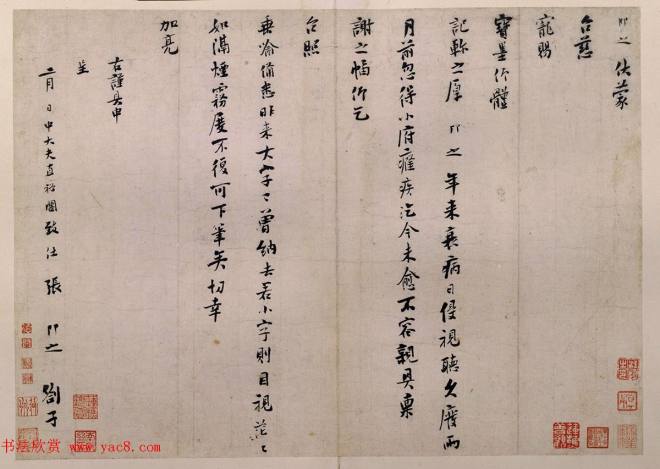 即之伏蒙
台慈
寵賜
寶墨仰體
記軫之厚即之年来衰病日侵視聽久廢兩
月前忽得小府癃疾迄今未愈不容親具稟
謝之幅仰乞
台照
垂喻備悉昨来大字已曾納去若小字則目視茫茫
如滿煙霧屢不復可下筆矣切幸
加亮
右謹具申
呈
二月 日中大夫直祕閣致仕張即之劄子
书法欣赏 www.yac8.com